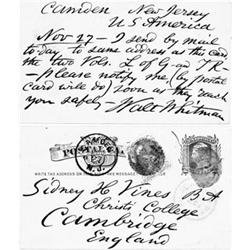 Camden New Jersey
US America
Nov 27 - I send by mail
to-day to same address as this card
the two Vols. L of G. and TR
- Please notify me (by postal
card will do) soon as they reach
you safely - Walt Whitman
POSTAL CARD
WRITE THE ADDRESS ON THIS SIDE - THE MESSAGE ON THE OTHER
Sidney H Vines B A
Christs College
Cambridge
England